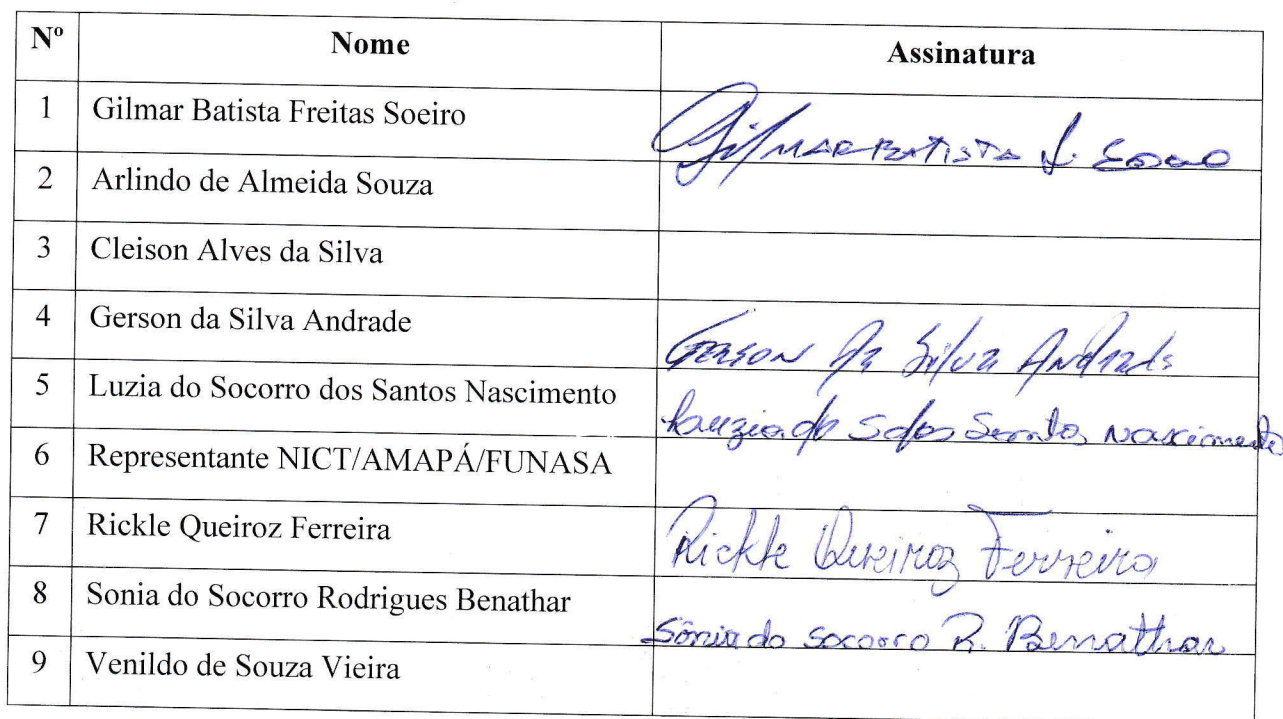 Nº Nome Assinatura
1 Gilmar Batista Freitas Soeiro Gilmar Batista
2 Arlindo de Almeida Souza
3 Cleison Alves da Silva
4 Gerson da Silva Andrade Gerson da Silva Andrade
5 Luzia do Socorro dos Santos Nascimento Luzia do S dos Santos Nascimento
6 Representante NICT/AMAPÁ/FUNASA
7 Rickle Queiroz Ferreira Rickle Queiroz Ferreira
8 Sonia do Socorro Rodrigues Benathar Sônia do Socorro R. Benathar
9 Venildo de Souza Vieira